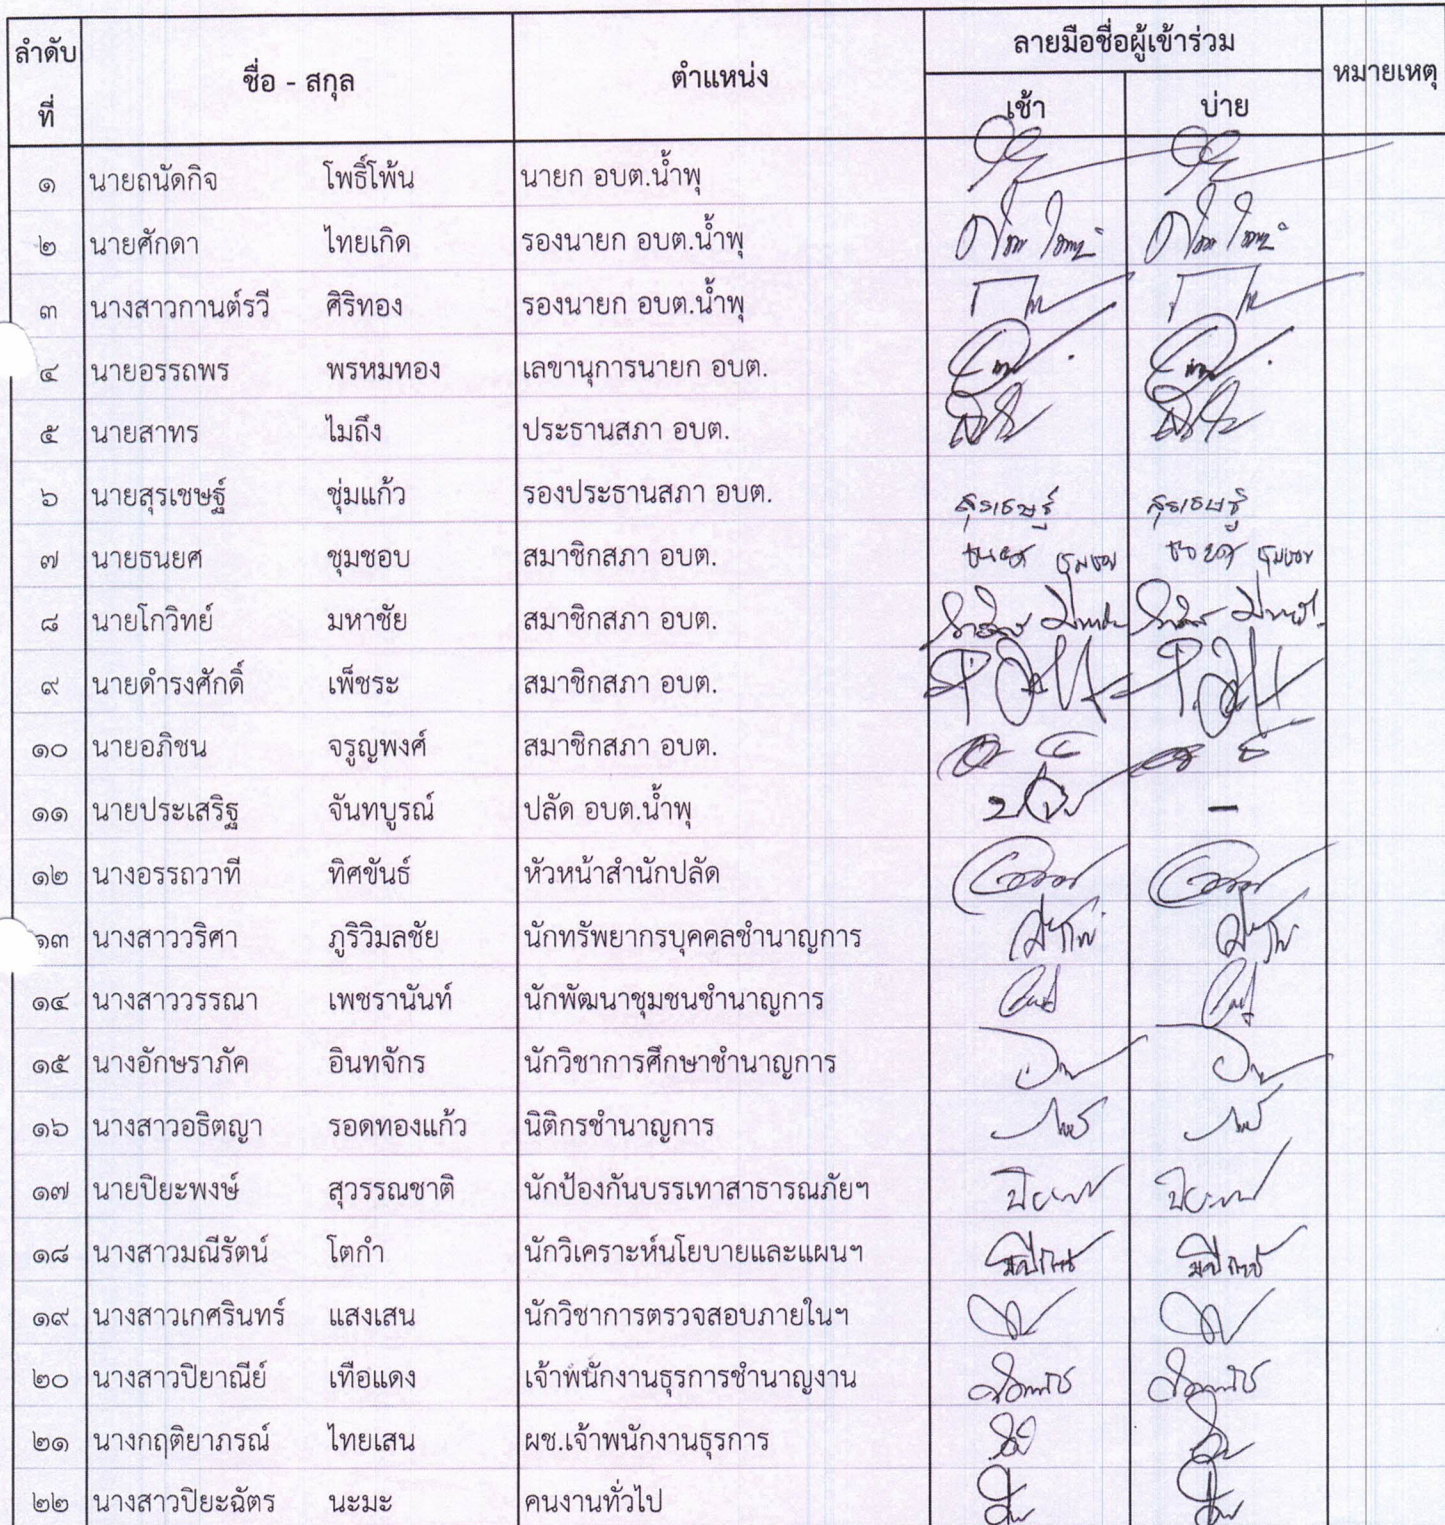 ลำดับที่ ชื่อ - สกุล ตำแหน่ง ลายมือชื่อผู้เข้าร่วม หมายเหตุ
เช้า บ่าย
๑ นายถนัดกิจ โพธิ์โพ้น นายก อบต.น้ำพุ
๒ นายศักดา ไทยเกิด รองนายก อบต.น้ำพุ
๓ นางสาวกานต์รวี ศิริทอง รองนายก อบต.น้ำพุ
๔ นายอรรถพร พรหมทอง เลขานุการนายก อบต.
๕ นายสาทร ไมถึง ประธานสภา อบต.
๖ นายสุรเชษฐ์ ชุ่มแก้ว รองประธานสภา อบต. สุรเชษฐ์ สุรเชษฐ์
๗ นายธนยศ ชุมชอบ สมาชิกสภา อบต. ธนยศ ชุมชอบ ธนยศ ชุมชอบ
๘ นายโกวิทย์ มหาชัย สมาชิกสภา อบต.
๙ นายดำรงศักดิ์ เพ็ชระ สมาชิกสภา อบต.
๑๐ นายอภิชน จรูญพงศ์ สมาชิกสภา อบต.
๑๑ นายประเสริฐ จันทบูรณ์ ปลัด อบต.น้ำพุ -
๑๒ นางอรรถวาที ทิศขันธ์ หัวหน้าสำนักปลัด
๑๓ นางสาววริศา ภูริวิมลชัย นักทรัพยากรบุคคลชำนาญการ
๑๔ นางสาววรรณา เพชรานันท์ นักพัฒนาชุมชนชำนาญการ
๑๕ นางอักษราภัค อินทจักร นักวิชาการศึกษาชำนาญการ
๑๖ นางสาวอธิตญา รอดทองแก้ว นิติกรชำนาญการ
๑๗ นายปิยะพงษ์ สุวรรณชาติ นักป้องกันบรรเทาสาธารณภัยฯ
๑๘ นางสาวมณีรัตน์ โตกำ นักวิเคราะห์นโยบายและแผนฯ
๑๙ นางสาวเกศรินทร์ แสงเสน นักวิชาการตรวจสอบภายในฯ
๒๐ นางสาวปิยาณีย์ เทือแดง เจ้าพนักงานธุรการชำนาญงาน
๒๑ นางกฤติยาภรณ์ ไทยเสน ผช.เจ้าพนักงานธุรการ
๒๒ นางสาวปิยะฉัตร นะมะ คนงานทั่วไป